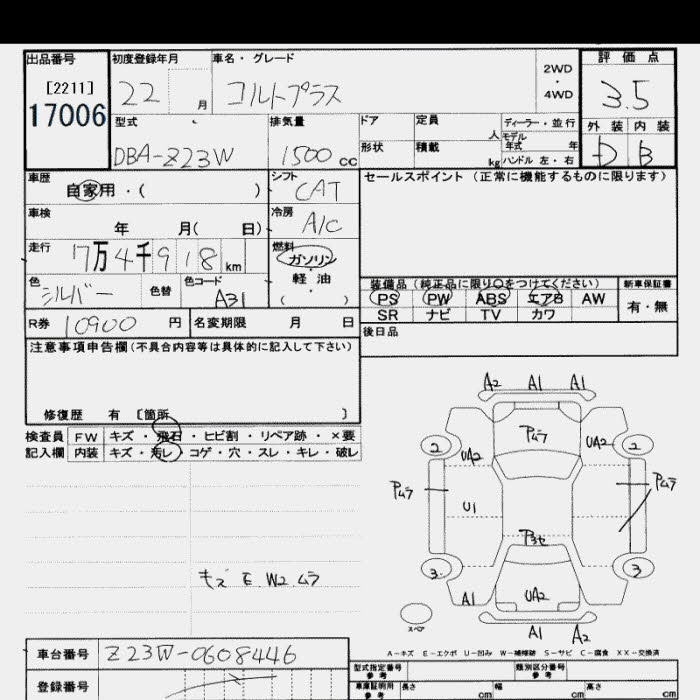 出品番号 初度登録年月 車名・グレード 2WD・4WD 評価点
[2211]
17006 22 月 コルトプラス 3.5
型式 排気量 ドア 定員 人 ディーラー・並行 外装 内装
DBA-Z23W 1500 CC 形状 積載 kg モデル年式 年 ハンドル 左・右 D B
車歴 シフト セールスポイント (正常に機能するものに限ります)
自家用・( ) CAT
車検 冷房
年 月( 日) A/C
走行 燃料
7万4千918km ガソリン
色 色替 色コード 軽油
シルバー A31 ( )
装備品(純正品に限り○をつけてください) 新車保証書
PS PW ABS エアB AW 有・無
SR ナビ TV カワ
R券 10900 円 名変期限 月 日 後日品
注意事項申告欄(不具合内容等は具体的に記入して下さい)
修復歴 有 [箇所 ]
検査員 FW キズ・飛石・ヒビ割・リペア跡・×要
記入欄 内装 キズ・汚レ・コゲ・穴・スレ・キレ・破レ
A2 A1 A1
Pムラ
2 UA2 UA2 2
Pムラ Pムラ
U1
P3セ
3 3
A1 UA2
スペア
A1 A2
キズ E W2 ムラ
A-キズ E-エクボ U-凹み W-補修跡 S-サビ C-腐食 XX-交換済
車台番号 Z23W-0608446
登録番号
型式指定番号 参考 類別区分番号 参考
車庫証明用 参考 長さ cm 幅 cm 高さ cm